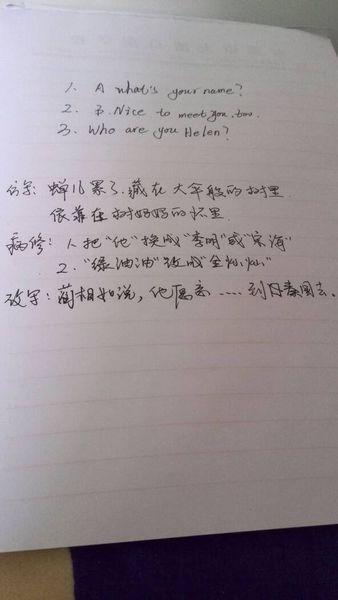 1. A what's your name?
2. B. Nice to meet you, too.
3. Who are you Helen?
仿写: 蝉儿累了,藏在大伞般的树里
依靠在树妈妈的怀里
病修: 1. 把"他"换成"李明"或"宋海"
2. "绿油油"改成"金灿灿"
改写: 蔺相如说,他愿意……到日秦国去.